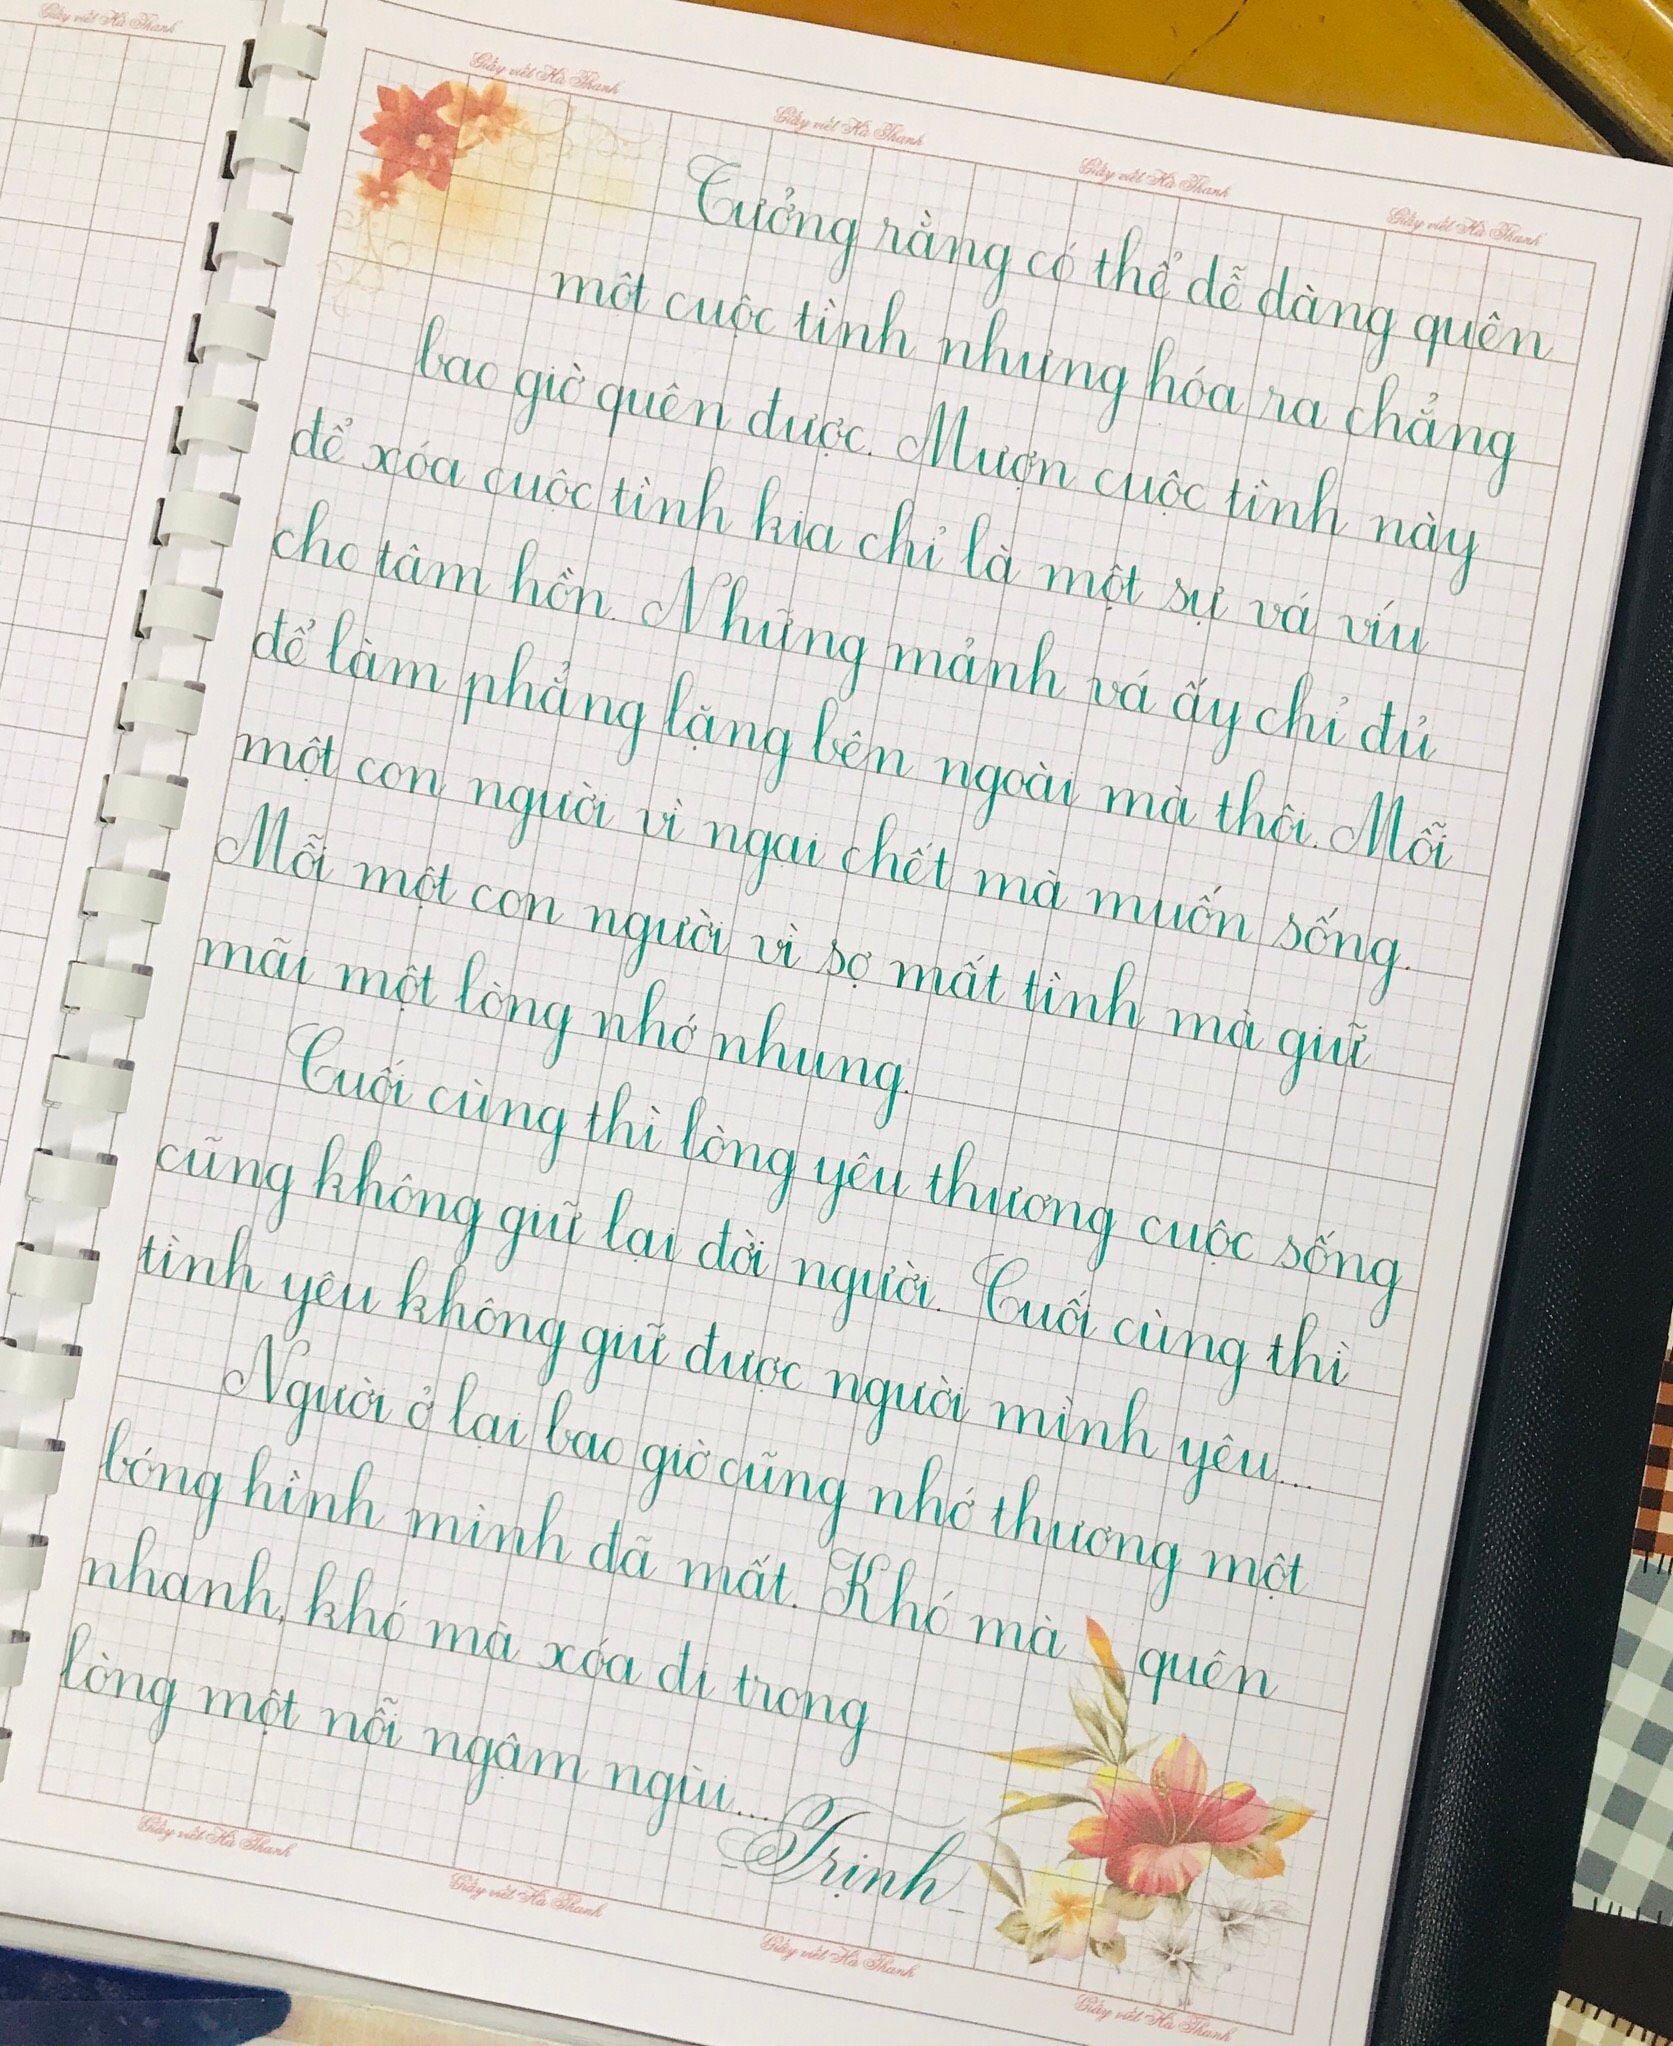 Giấy viết Hà Thanh
Giấy viết Hà Thanh
Giấy viết Hà Thanh
Giấy viết Hà Thanh
Giấy viết Hà Thanh
Tưởng rằng có thể dễ dàng quên
một cuộc tình nhưng hóa ra chẳng
bao giờ quên được. Mượn cuộc tình này
để xóa cuộc tình kia chỉ là một sự vá víu
cho tâm hồn. Những mảnh vá ấy chỉ đủ
để làm phẳng lặng bên ngoài mà thôi. Mỗi
một con người vì ngại chết mà muốn sống.
Mỗi một con người vì sợ mất tình mà giữ
mãi một lòng nhớ nhung.
Cuối cùng thì lòng yêu thương cuộc sống
cũng không giữ lại đời người. Cuối cùng thì
tình yêu không giữ được người mình yêu...
Người ở lại bao giờ cũng nhớ thương một
bóng hình mình đã mất. Khó mà quên
nhanh, khó mà xóa đi trong
lòng một nỗi ngậm ngùi...
Trịnh
Giấy viết Hà Thanh
Giấy viết Hà Thanh
Giấy viết Hà Thanh
Giấy viết Hà Thanh